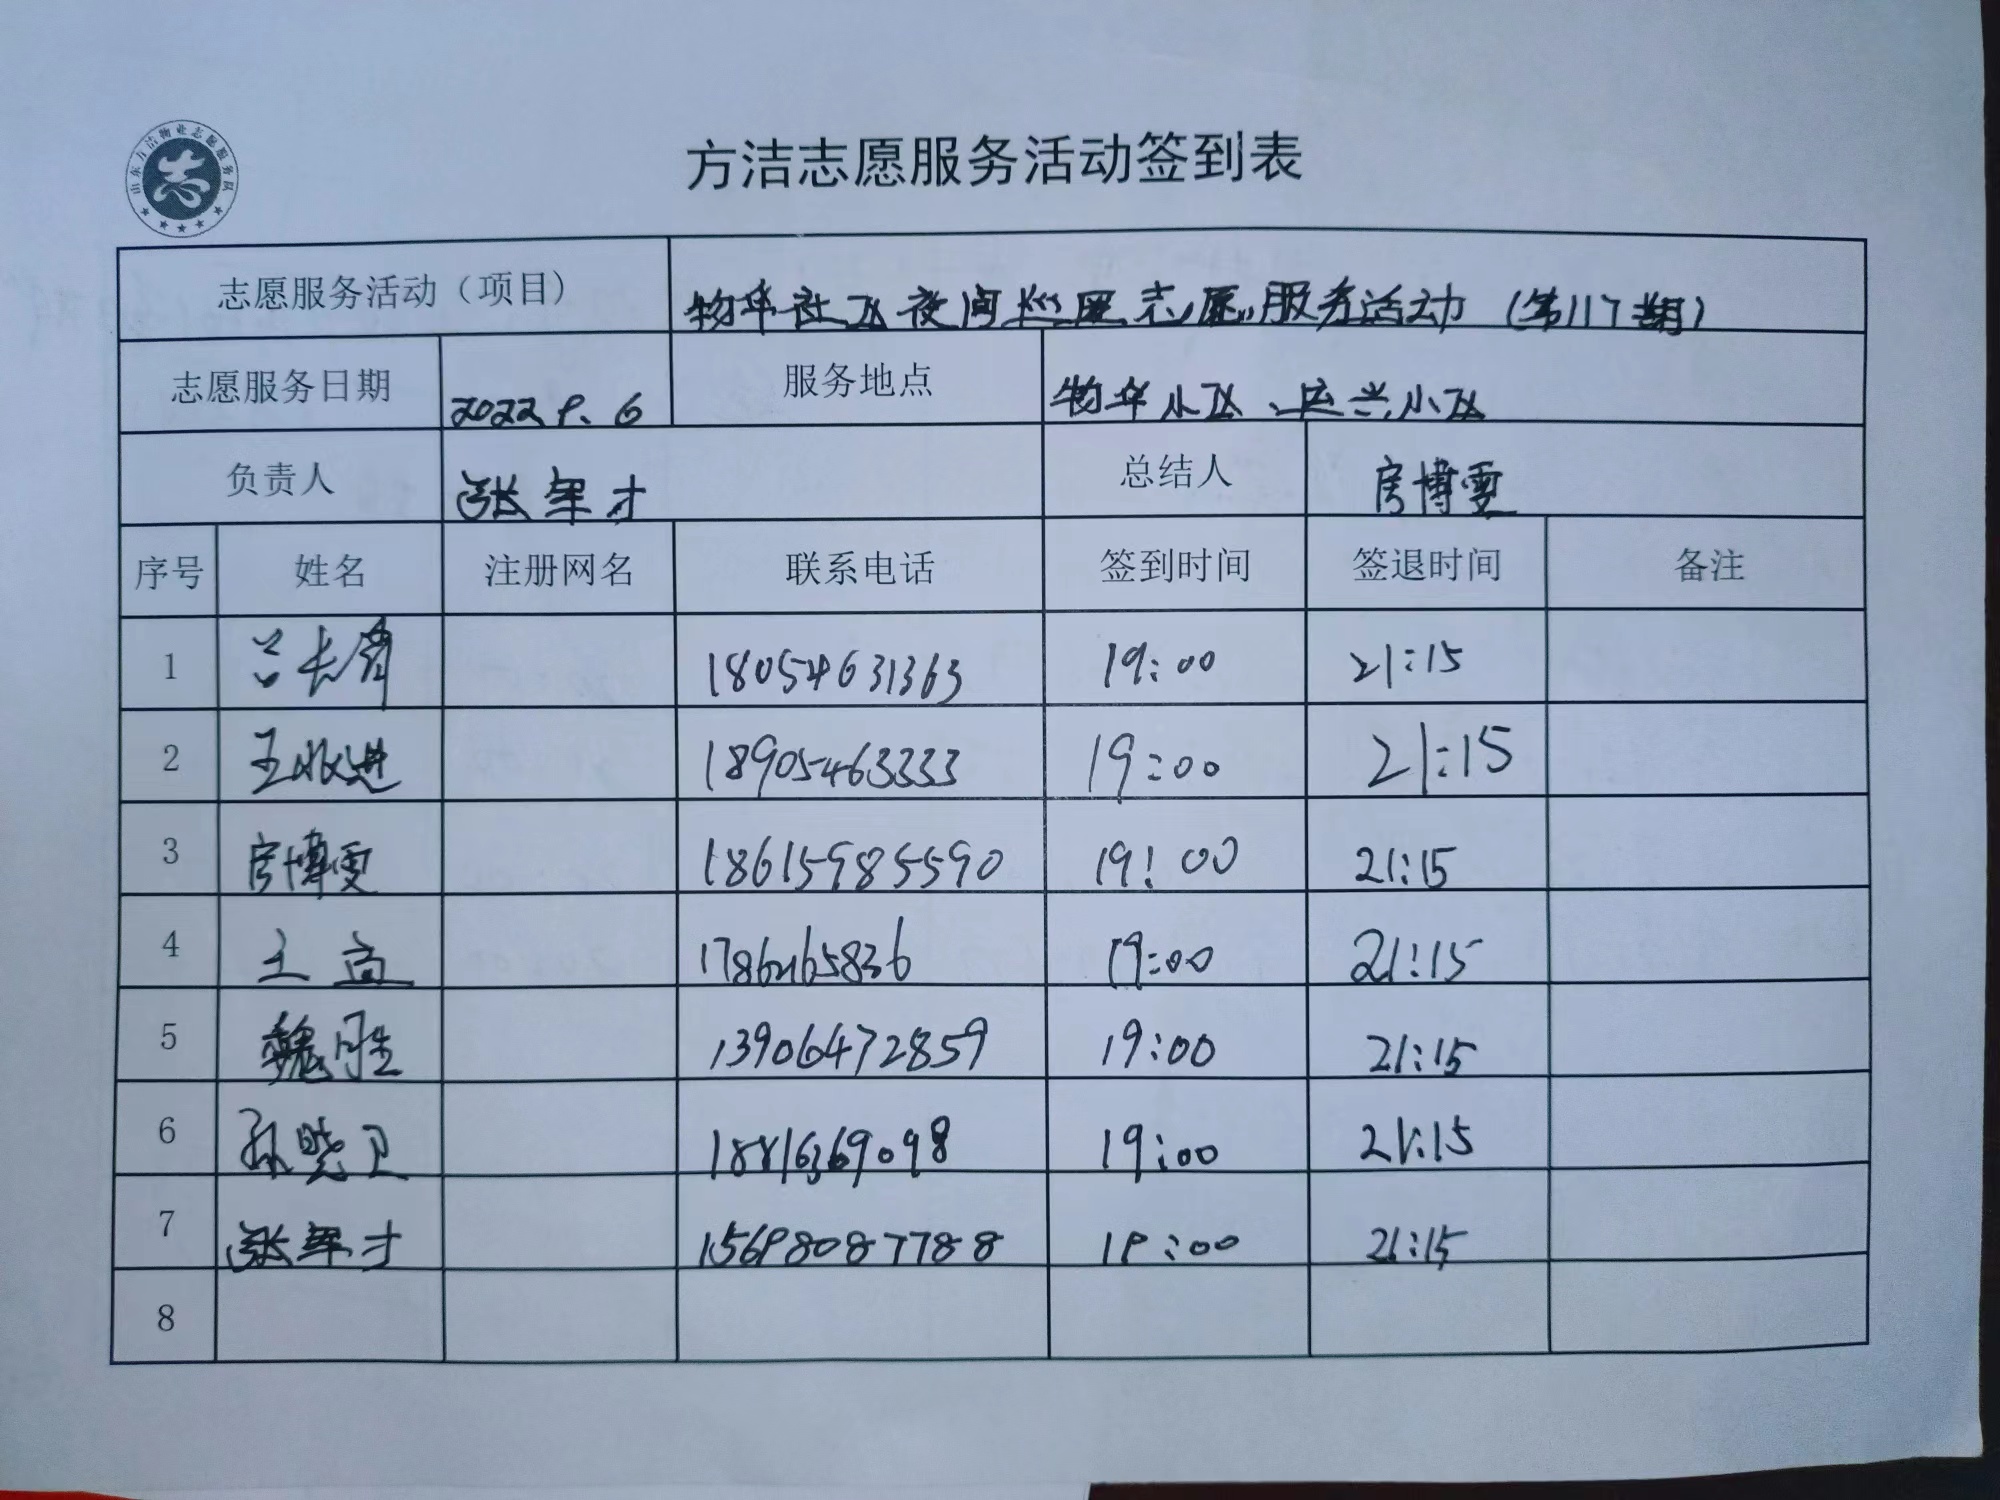 山东方洁物业志愿服务队
志
方洁志愿服务活动签到表
志愿服务活动（项目） 物华社区夜间巡逻志愿服务活动（第117期）
志愿服务日期 2022.9.6 服务地点 物华小区、庆兴小区
负责人 张军才 总结人 房博雯
序号 姓名 注册网名 联系电话 签到时间 签退时间 备注
1 吕长军 18054631363 19:00 21:15
2 王永进 18905463333 19:00 21:15
3 房博雯 18615985590 19:00 21:15
4 王 17862165836 19:00 21:15
5 魏胜 13906472859 19:00 21:15
6 孙晓卫 19:00 21:15
7 张军才 15698087788 19:00 21:15
8